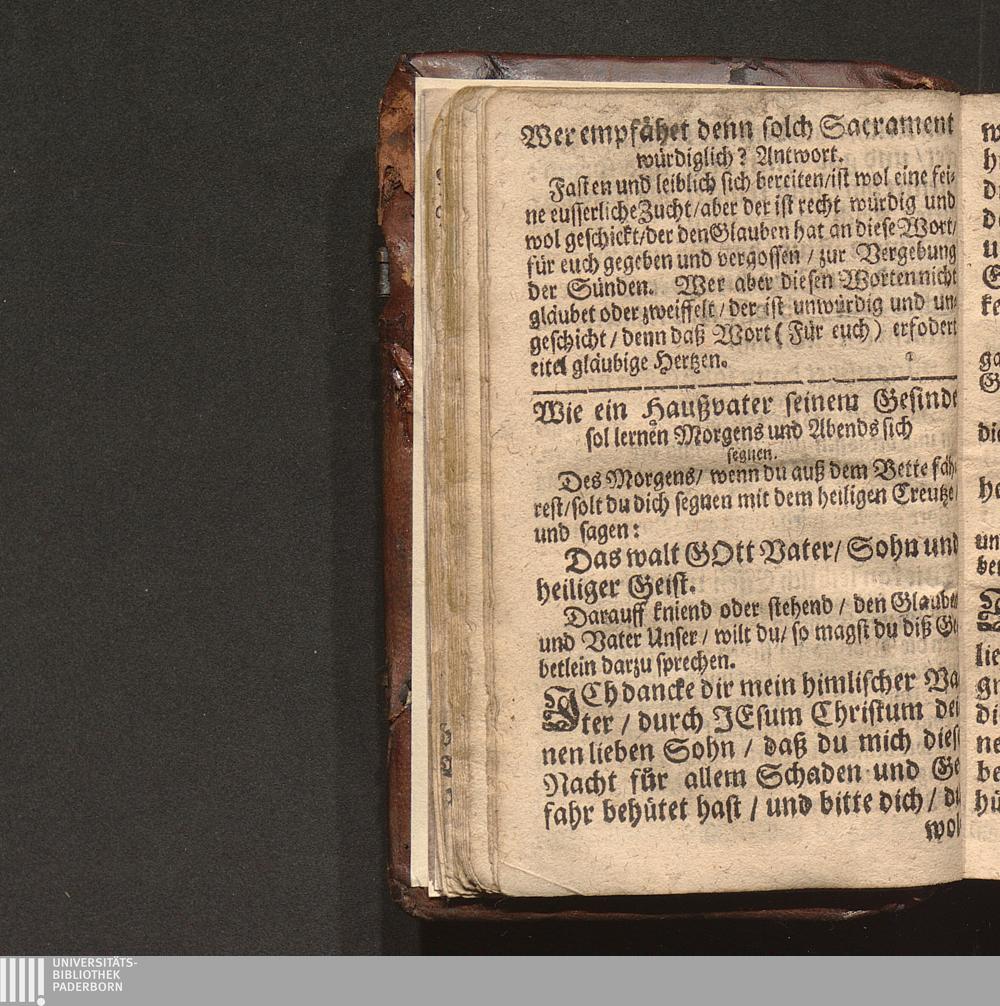 Wer empfåhet denn solch Sacrament
würdiglich? Antwort.
Fasten und leiblich sich bereiten/ist wol eine fei-
ne eusserliche Zucht/aber der ist recht würdig und
wol geschickt/der den Glauben hat an diese Wort/
für euch gegeben und vergossen / zur Vergebung
der Sünden. Wer aber diesen Worten nicht
gläubet oder zweiffelt / der ist unwürdig und un-
geschicht / denn daß Wort ( Für euch ) erfodert
eitel gläubige Hertzen.
Wie ein Haußvater seinem Gesinde
sol lernen Morgens und Abends sich
segnen.
Des Morgens/ wenn du auß dem Bette fäh-
rest/solt du dich segnen mit dem heiligen Creutze/
und sagen:
Das walt GOtt Vater/ Sohn und
heiliger Geist.
Darauff kniend oder stehend / den Glauben
und Vater Unser / wilt du/ so magst du diß Ge
betlein darzu sprechen.
ICh dancke dir mein himlischer Va
ter / durch JEsum Christum dei
nen lieben Sohn / daß du mich diese
Nacht für allem Schaden und Ge
fahr behütet hast / und bitte dich / du
wol
UNIVERSITÄTS-
BIBLIOTHEK
PADERBORN